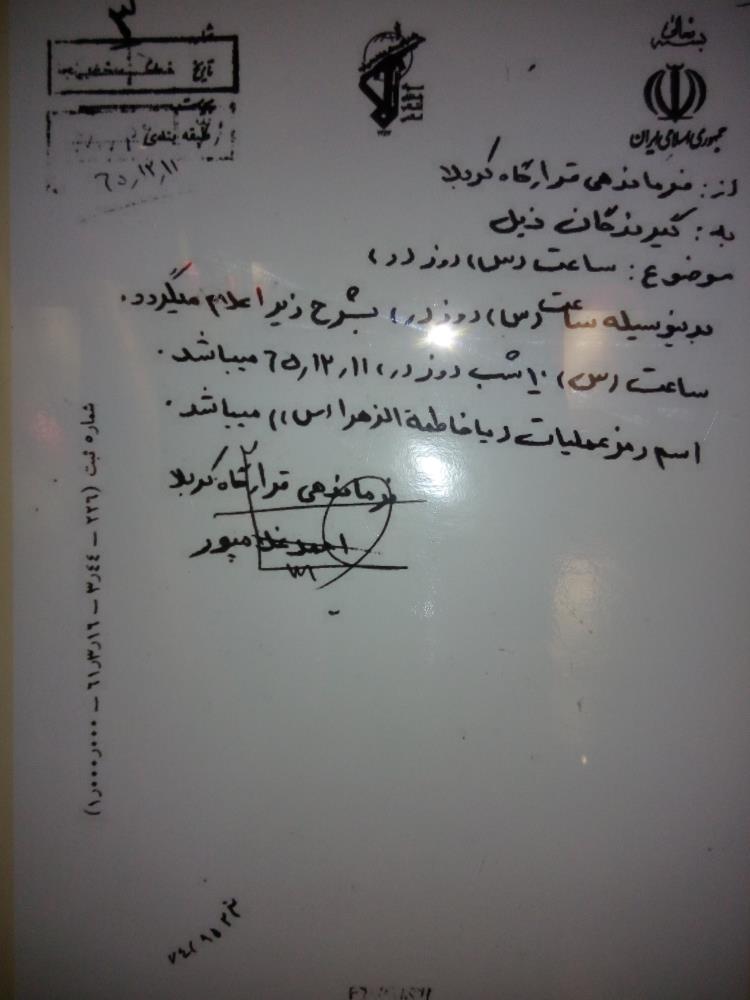 بسمه تعالی
جمهوری اسلامی ایران
۳
شماره
تاریخ
پیوست
طبقه بندی
۶۵٫۱۲٫۱۱
از: فرماندهی قرارگاه کربلا
به: گیرندگان ذیل
موضوع: ساعت (س) روز (ر)
بدینوسیله ساعت (س) روز (ر) بشرح زیر اعلام میگردد.
ساعت (س) ۱۰ شب روز (ر) ۶۵٫۱۲٫۱۱ میباشد.
اسم رمز عملیات (یا فاطمة الزهرا (س)) میباشد.
فرماندهی قرارگاه کربلا
احمد غلامپور
شماره ثبت (۲۲۶ – ۳٫۴۴ – ۶۱٫۳٫۱۶ – ۱٫۰۰۰٫۰۰۰)